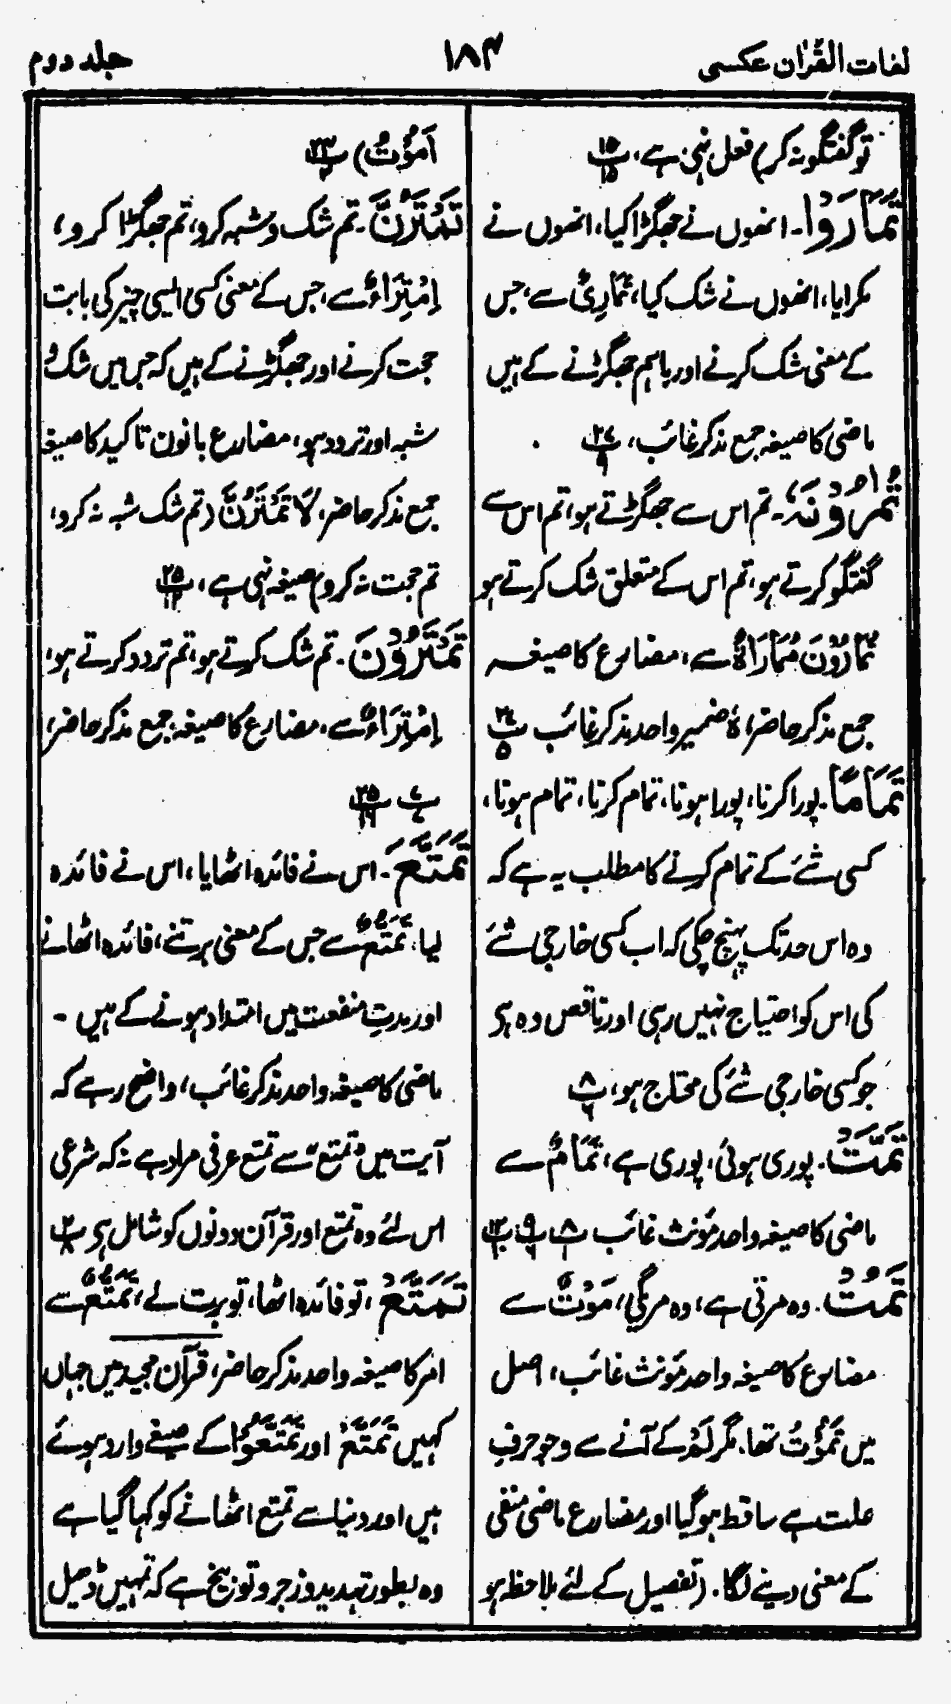 لغات القرآن عکسی
۱۸۴
جلد دوم
تو گفتگو نہ کر) فعل نہی ہے، پ ۱۵/۱۵
تَمَارَوْا۔ انھوں نے جھگڑا کیا، انھوں نے
مکرایا، انھوں نے شک کیا، تَمَارِیٌ سے، جس
کے معنی شک کرنے اور باہم جھگڑنے کے ہیں
ماضی کا صیغہ جمع مذکر غائب، پ ۲۷/۹
تُمٰرُوْنَہٗ۔ تم اس سے جھگڑتے ہو، تم اس سے
گفتگو کرتے ہو، تم اس کے متعلق شک کرتے ہو
تُمَارُوْنَ مُمَارَاۃٌ سے، مضارع کا صیغہ
جمع مذکر حاضر، ہٗ ضمیر واحد مذکر غائب پ ۲۷/۵
تَمَامًا۔ پورا کرنا، پورا ہونا، تمام کرنا، تمام ہونا،
کسی شے کے تمام کرنے کا مطلب یہ ہے کہ
وہ اس حد تک پہنچ چکی کہ اب کسی خارجی شے
کی اس کو احتیاج نہیں رہی اور ناقص وہ ہے
جو کسی خارجی شے کی محتاج ہو، پ ۸/۶
تَمَّتْ۔ پوری ہوئی، پوری ہے، تَمَامٌ سے
ماضی کا صیغہ واحد مؤنث غائب پ ۸/۱ پ ۹/۶ پ ۱۲/۱۰
تَمُتْ۔ وہ مرتی ہے، وہ مریگی، مَوْتٌ سے
مضارع کا صیغہ واحد مؤنث غائب، اصل
میں تَمُوْتُ تھا۔ مگر لَمْ کے آنے سے وجو حرفِ
علت ہے ساقط ہوگیا اور مضارع ماضی منفی
کے معنی دینے لگا۔ (تفصیل کے لئے ملاحظہ ہو
اَمُوْتُ) پ ۲۳/۶
تَمْتَرُنَّ۔ تم شک و شبہ کرو، تم جھگڑا کرو،
اِمْتِرَاءٌ سے، جس کے معنی کسی ایسی چیز کی بابت
حجت کرنے اور جھگڑنے کے ہیں کہ جس میں شک و
شبہ اور تردد ہو، مضارع بانون تاکید کا صیغہ
جمع مذکر حاضر، لَا تَمْتَرُنَّ (تم شک شبہ نہ کرو،
تم حجت نہ کرو) صیغہ نہی ہے، پ ۲۵/۱۲
تَمْتَرُوْنَ۔ تم شک کرتے ہو، تم تردد کرتے ہو،
اِمْتِرَاءٌ سے، مضارع کا صیغہ جمع مذکر حاضر،
پ ۷/۷ پ ۲۵/۱۶
تَمَتَّعَ۔ اس نے فائدہ اٹھایا، اس نے فائدہ
لیا، تَمَتُّعٌ سے جس کے معنی برتنے، فائدہ اٹھانے
اور مدتِ منفعت میں امتداد ہونے کے ہیں۔
ماضی کا صیغہ واحد مذکر غائب، واضح رہے کہ
آیت میں "تمتع" سے تمتع عرفی مراد ہے نہ کہ شرعی
اس لئے وہ تمتع اور قرآن دونوں کو شامل ہے پ ۲/۸
تَمَتَّعْ، تو فائدہ اٹھا، تو برت لے، تَمَتُّعٌ سے
امر کا صیغہ واحد مذکر حاضر، قرآن مجید میں جہاں
کہیں تَمَتَّعْ اور تَمَتَّعُوْا کے صیغے وارد ہوئے
ہیں اور دنیا سے تمتع اٹھانے کو کہا گیا ہے
وہ بطور تہدید و زجر و توبیخ ہے کہ تمہیں ڈھیل